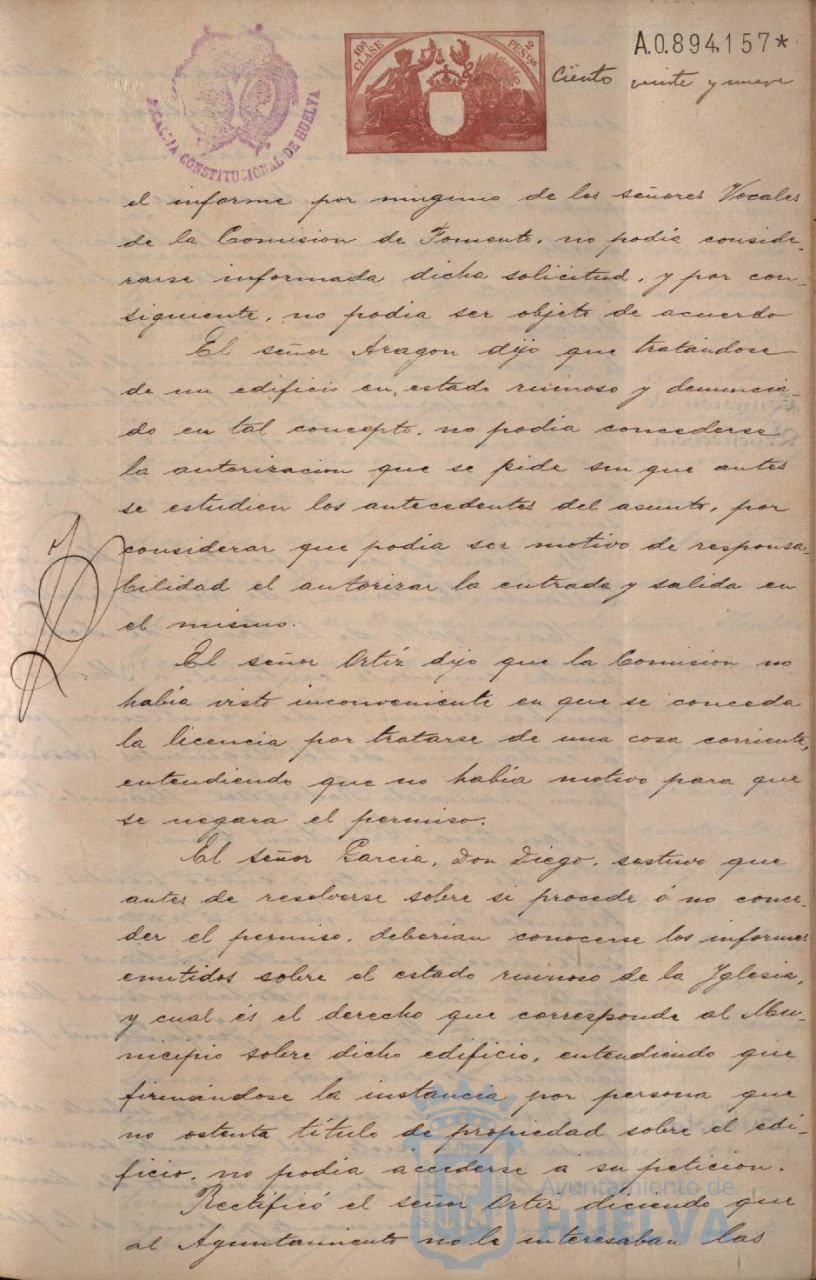 A.0.894,157*
10ª CLASE
2 PESTAS
ALCALDIA CONSTITUCIONAL DE HUELVA
Ciento veinte y nueve
el informe por ninguno de los señores Vocales
de la Comision de Fomento, no podia conside-
rarse informada dicha solicitud, y por con-
siguiente, no podia ser objeto de acuerdo
El señor Aragon dijo que tratándose
de un edificio en estado ruinoso y denuncia-
do en tal concepto, no podia concederse
la autorizacion que se pide sin que antes
se estudien los antecedentes del asunto, por
considerar que podia ser motivo de responsa-
bilidad el autorizar la entrada y salida en
el mismo.
El señor Ortiz dijo que la Comision no
habia visto inconveniente en que se conceda
la licencia por tratarse de una cosa corriente,
entendiendo que no habia motivo para que
se negara el permiso.
El señor Garcia, Don Diego, sostuvo que
antes de resolverse sobre si procede ó no conce-
der el permiso, deberian conocerse los informes
emitidos sobre el estado ruinoso de la Yglesia,
y cual és el derecho que corresponde al Mu-
nicipio sobre dicho edificio, entendiendo que
firmándose la instancia por persona que
no ostenta título de propiedad sobre el edi-
ficio, no podia accederse a su peticion.
Rectificó el señor Ortiz diciendo que
al Ayuntamiento no le interesaban las
Ayuntamiento de
HUELVA